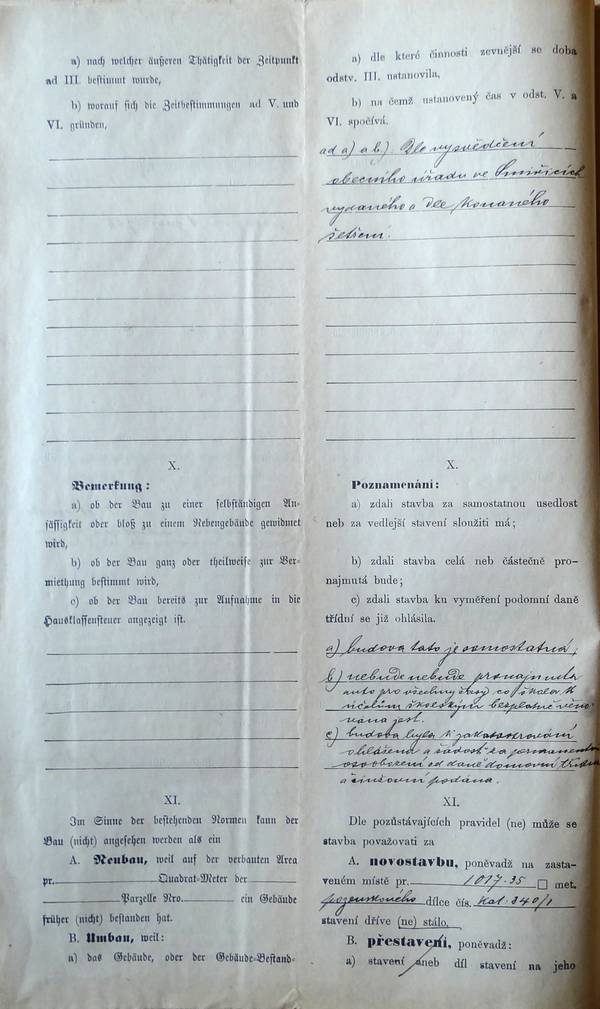 a) nach welcher äußeren Thätigkeit der Zeitpunkt
ad III. bestimmt wurde,
b) worauf sich die Zeitbestimmungen ad V. und
VI. gründen,
X.
Bemerkung:
a) ob der Bau zu einer selbständigen An-
sässigkeit oder bloß zu einem Nebengebäude gewidmet
wird,
b) ob der Bau ganz oder theilweise zur Ver-
miethung bestimmt wird,
c) ob der Bau bereits zur Aufnahme in die
Hausklassensteuer angezeigt ist.
XI.
Im Sinne der bestehenden Normen kann der
Bau (nicht) angesehen werden als ein
A. Neubau, weil auf der verbauten Area
pr. Quadrat-Meter der
Parzelle Nro. ein Gebäude
früher (nicht) bestanden hat.
B. Umbau, weil:
a) das Gebäude, oder der Gebäude-Bestand-
a) dle které činnosti zevnější se doba
odstv. III. ustanovila,
b) na čemž ustanovený čas v odst. V. a
VI. spočívá.
ad a) a b) Dle vysvědčení
obecního úřadu ve Smiřicích
vydaného a dle konaného
šetření.
X.
Poznamenání:
a) zdali stavba za samostatnou usedlost
neb za vedlejší stavení sloužiti má;
b) zdali stavba celá neb částečně pro-
najmutá bude;
c) zdali stavba ku vyměření podomní daně
třídní se již ohlásila.
a) budova tato je osmostatná,
b) nebude nebude pronajmuta
anto pro všechny časy co škola k
účelům školským bezplatně věno-
vána jest.
c) budova byla k zakatastrování
ohlášena a žádost za permanentní
osvobození od daně domovní třídní
a činžovní podána.
XI.
Dle pozůstávajících pravidel (ne) může se
stavba považovati za
A. novostavbu, poněvadž na zasta-
veném místě pr. 1017·35 □ met.
pozemkového dílce čís. kat. 340/1
stavení dříve (ne) stálo.
B. přestavení, poněvadž:
a) stavení aneb díl stavení na jeho